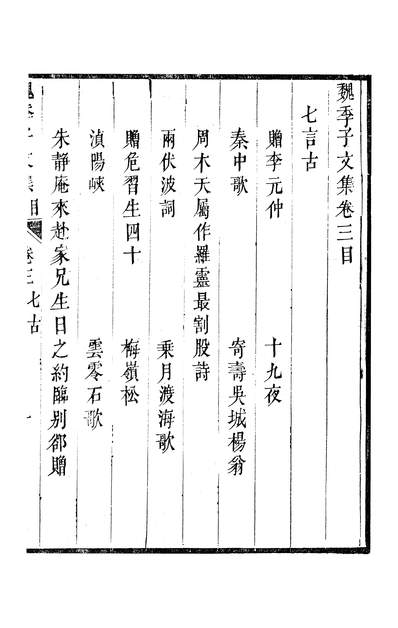 魏季子文集卷三目
七言古
贈李元仲　十九夜
秦中歌　寄壽吳城楊翁
周木天屬作羅靈最割股詩
兩伏波詞　乘月渡海歌
贈危習生四十　梅嶺松
滇陽峽　雲零石歌
朱静庵來赴家兄生日之約臨别郤贈
魏季子文集目　卷三七古　一